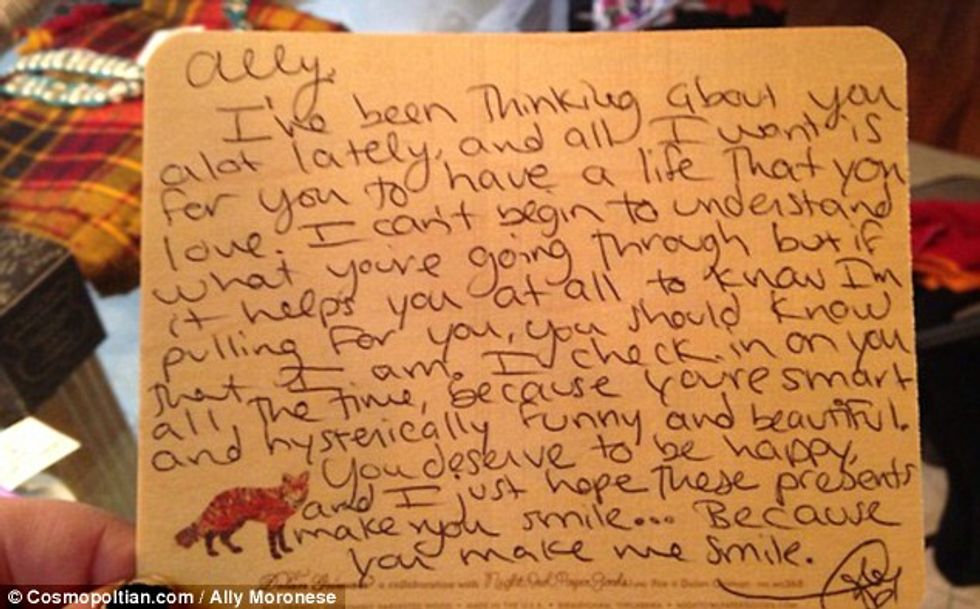 Ally,
I've been Thinking about you
alot lately, and all I want is
for you to have a life That you
love. I can't begin to understand
what you're going Through but if
it helps you at all to know I'm
pulling for you, you should know
that I am. I check in on you
all The time, because you're smart
and hysterically funny and beautiful.
You deserve to be happy,
and I just hope These presents
make you smile... Because
you make me smile.
a collaboration with Night Owl Paper Goods
© Cosmopoltian.com / Ally Moronese